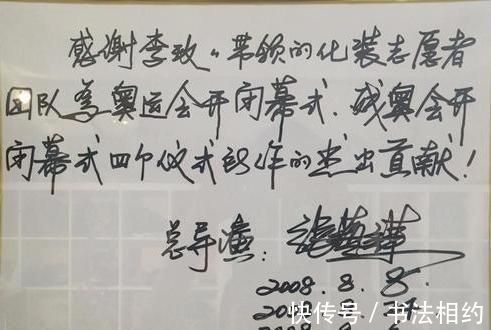 感谢李玫、带领的化装志愿者
团队为奥运会开闭幕式、残奥会开
闭幕式四个仪式所作的杰出贡献！
总导演：张艺谋
2008.8.8.
快传号/书法相约